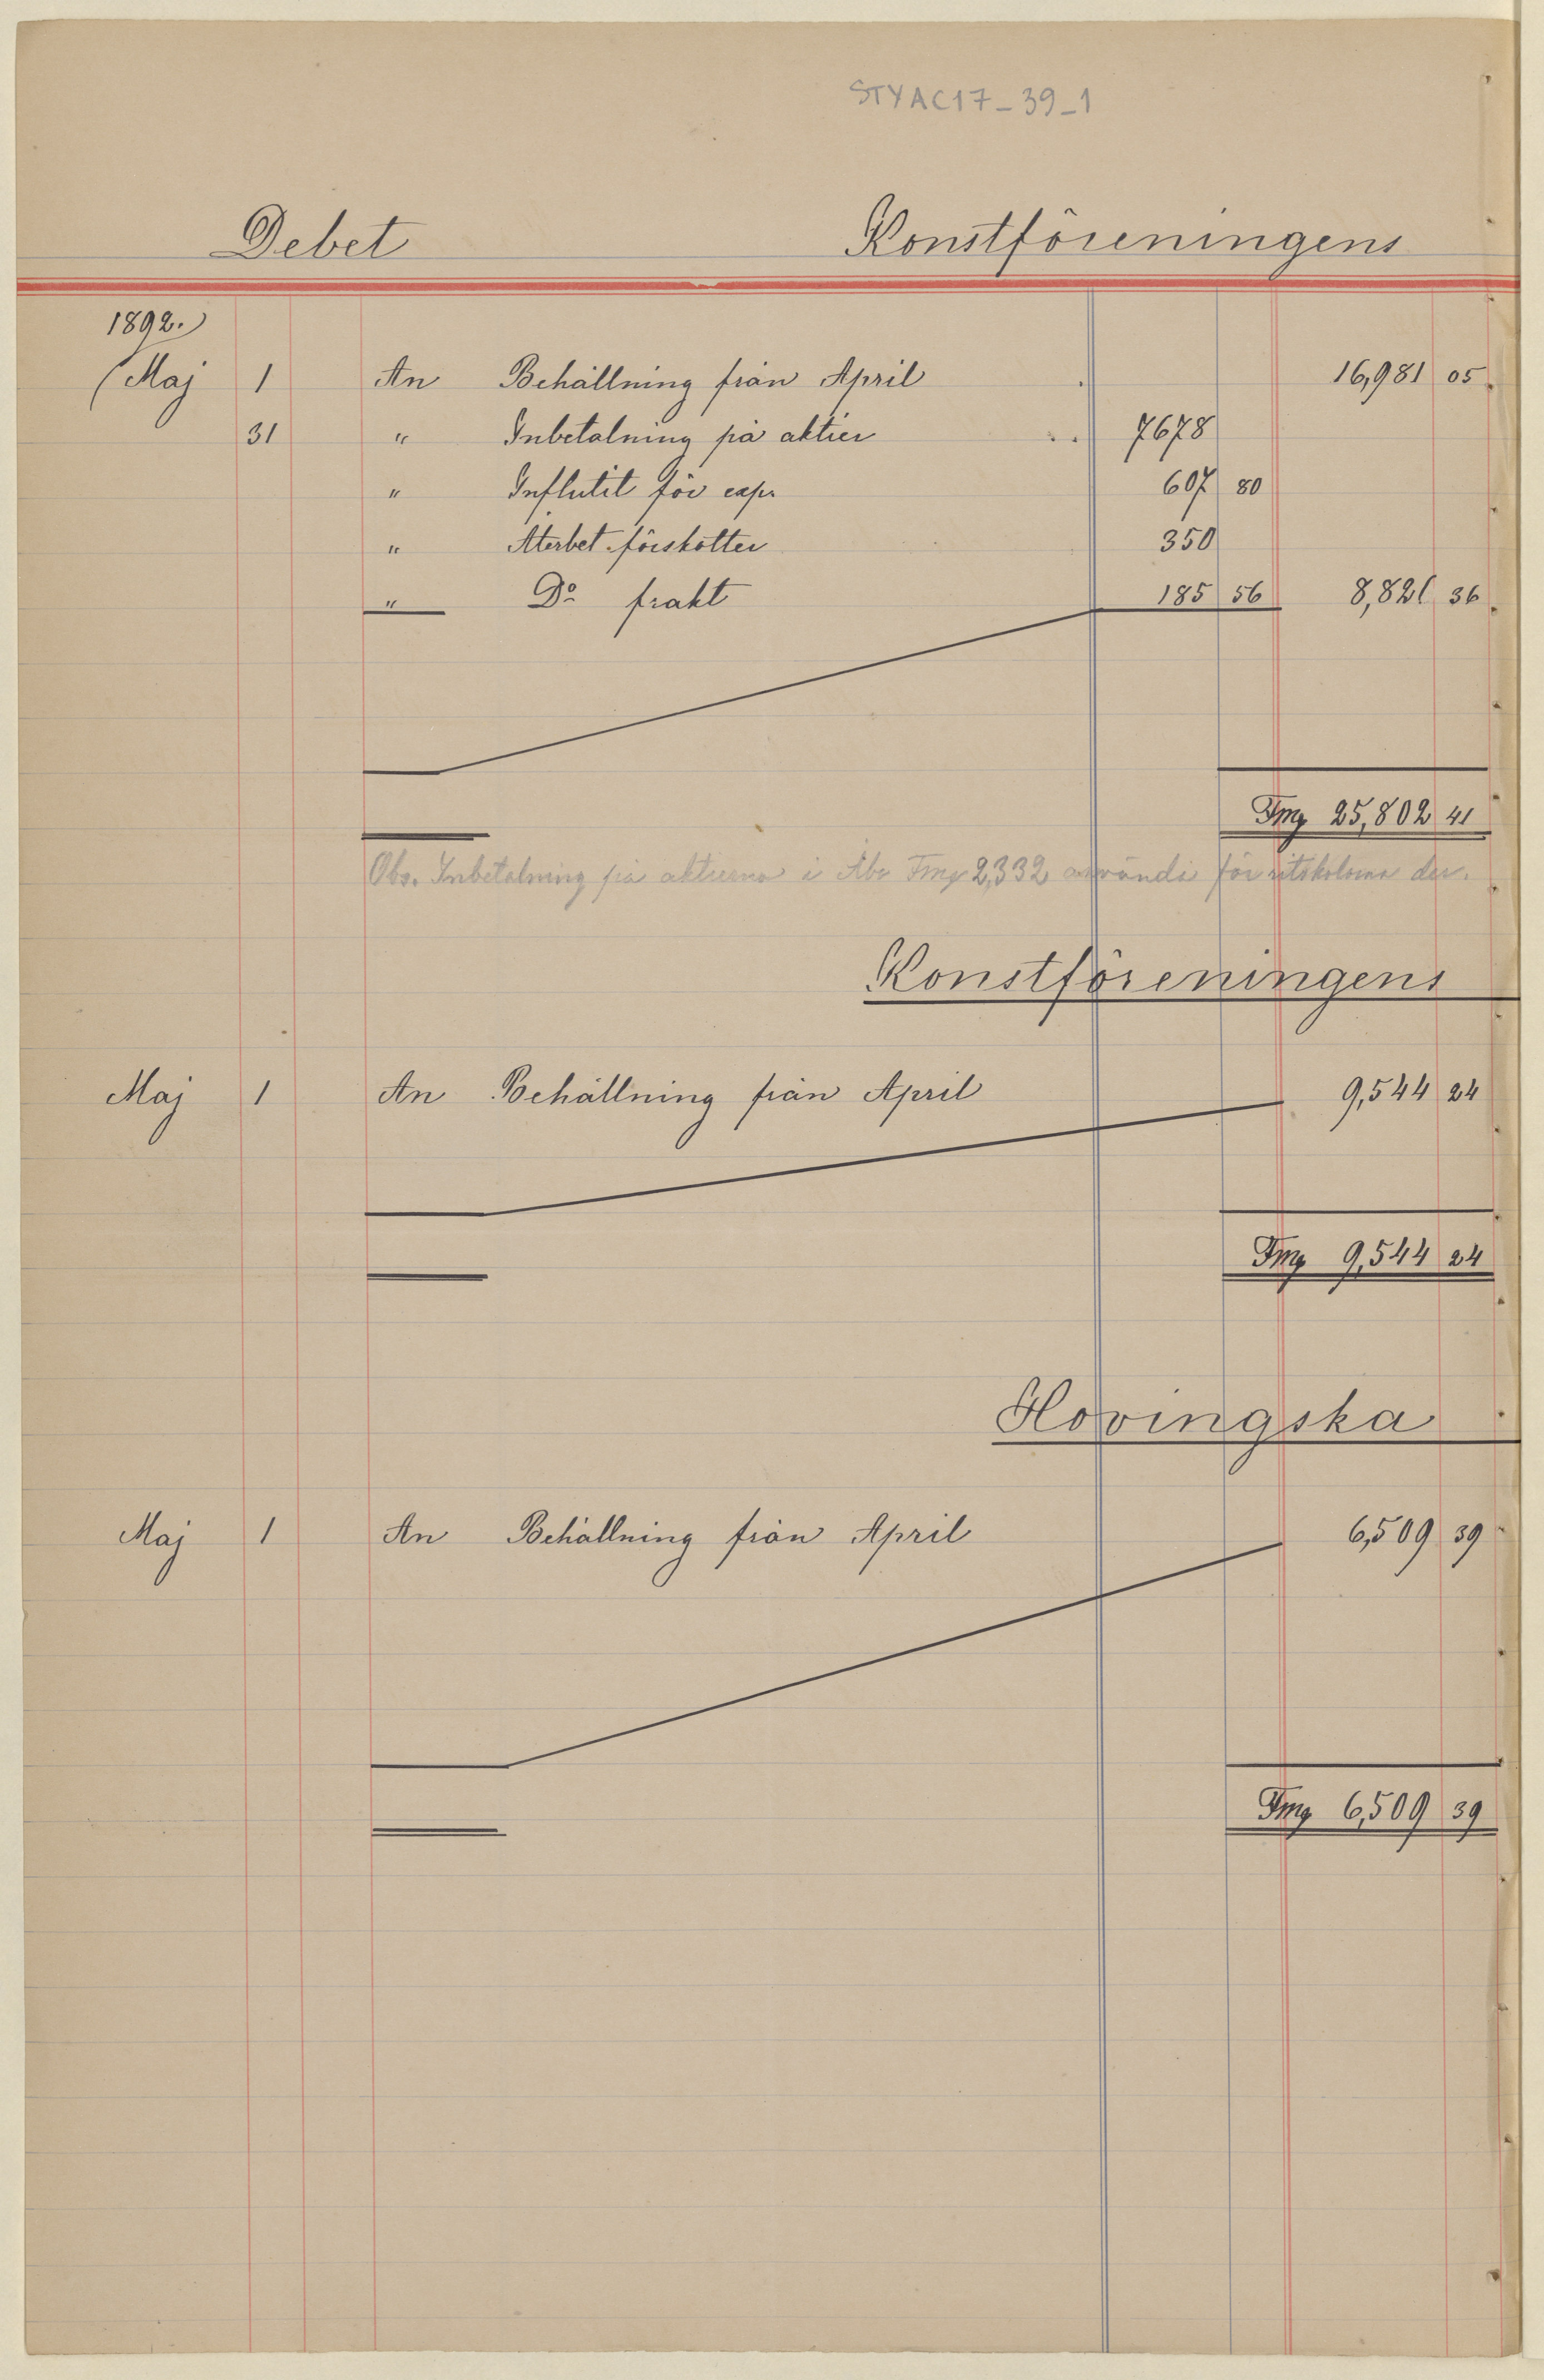 STYAC17_39_1
Debet Konstföreningens
1892.
Maj 1 An Behållning från April 16,981 05
31 " Inbetalning på aktier 7678
" Influtit för exp. 607 80
" Återbet. förskotter 350
" Do frakt 185 56 8,821 36
Fmg 25,802 41
Obs. Inbetalning på aktierna i Åbo Fmg 2,332 använda för ritskolorna der.
Konstföreningens
Maj 1 An Behållning från April 9,544 24
Fmg 9,544 24
Hovingska
Maj 1 An Behållning från April 6,509 39
Fmg 6,509 39